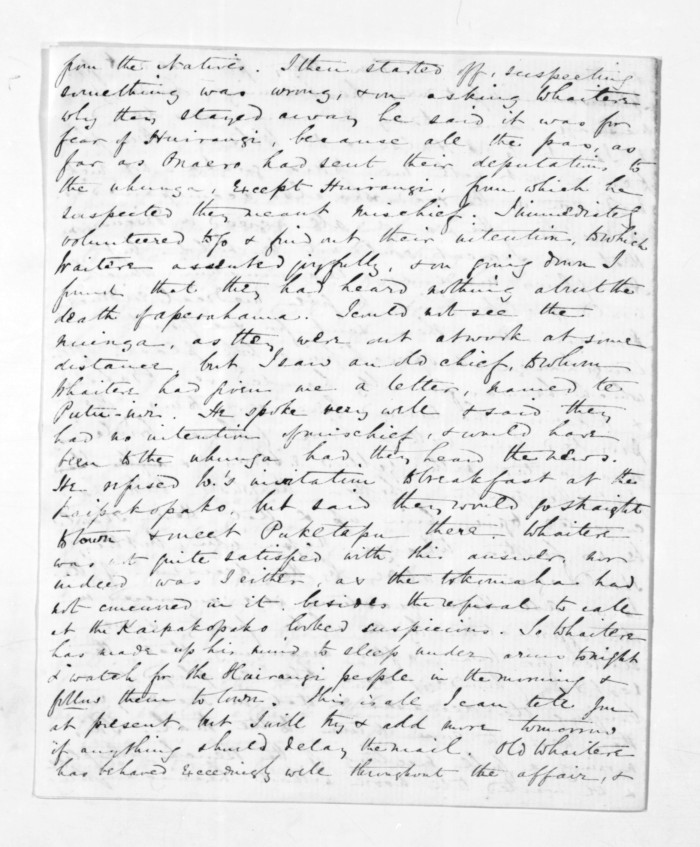 from the Natives. I then started off, suspecting
something was wrong, & on asking Whaitere
why they stayed away he said it was for
fear of Huirangi, because all the pas, as
far as Maero had sent their deputations to
the uhunga, except Huirangi, from which he
suspected they meant mischief. I immediately
volunteered to go & find out their intention, to which
Waitere assented joyfully, & on going down I
found that they had heard nothing about the
death of aperahama. I could not see the
ruinga, as they were out at work at some
distance, but I saw an old chief, to whom
Whaitere had given me a letter, named te
Putu-. He spoke very well & said they
had no intention of mischief, & would have
been to the uhunga had they heard the news.
He refused W.'s invitation to breakfast at the
Kaipakopako, but said they would go straight
to town & meet Puketapu there. Whaitere
was not quite satisfied with this answer, nor
indeed was I either, as the tokomaha had
not concurred in it, besides the refusal to call
at the Kaipakopako looked suspicious. So Whaitere
has made up his mind to sleep under arms tonight
& watch for the Huirangi people in the morning &
follow them to town. This is all I can tell you
at present, but I will try & add more tomorrow
if anything should delay the mail. Old Whaitere
has behaved exceedingly well throughout the affair, &